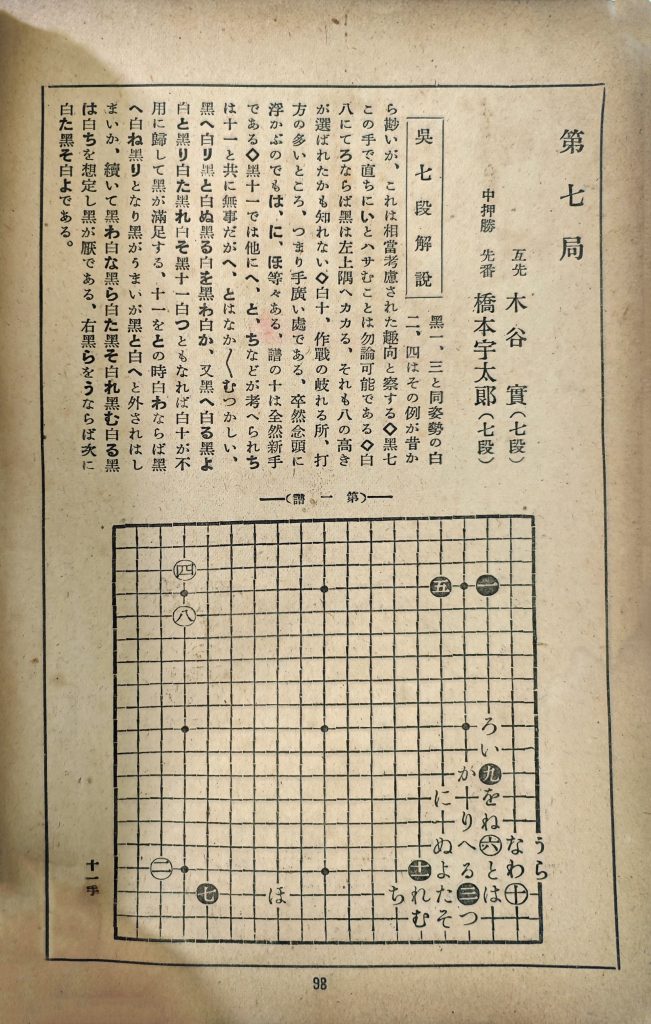 第七局
五先 木谷實(七段)
中押勝 先番 橋本宇太郎(七段)
吳七段解說
黑一、三と同姿勢の白
二、四はその例が昔か
ら尠いが、これは相當考慮された趣向と察する◇黑七
この手で直ちにいとハサむことは勿論可能である◇白
八にてろならば黑は左上隅へカカる、それも八の高き
が選ばれたかも知れない◇白十、作戰の岐れる所、打
方の多いところ、つまり手廣い處である、卒然念頭に
浮かぶのでもは、に、ほ等々ある、譜の十は全然新手
である◇黑十一では他にへ、と、ちなどが考へられち
は十一と共に無事だがへ、とはなか〱むつかしい、
黑へ白リ黑と白ぬ黑る白を黑わ白か、又黑へ白る黑よ
白と黑り白た黑れ白そ黑十一白つともなれば白十が不
用に歸して黑が滿足する、十一をとの時白わならば黑
へ白ね黑リとなり黑がうまいが黑と白へと外されはし
まいか、續いて黑わ白な黑ら白た黑そ白れ黑む白る黑
は白ちを想定し黑が厭である、右黑らをうならば次に
白た黑そ白よである。
(第一譜)
四
五 一
八
ろ
い
が 九
に 十 を
り ね
ぬ へ 六 な う
二 十一 よ る と わ ら
七 ほ ち れ た 三 は 十
む そ つ
十一手
98